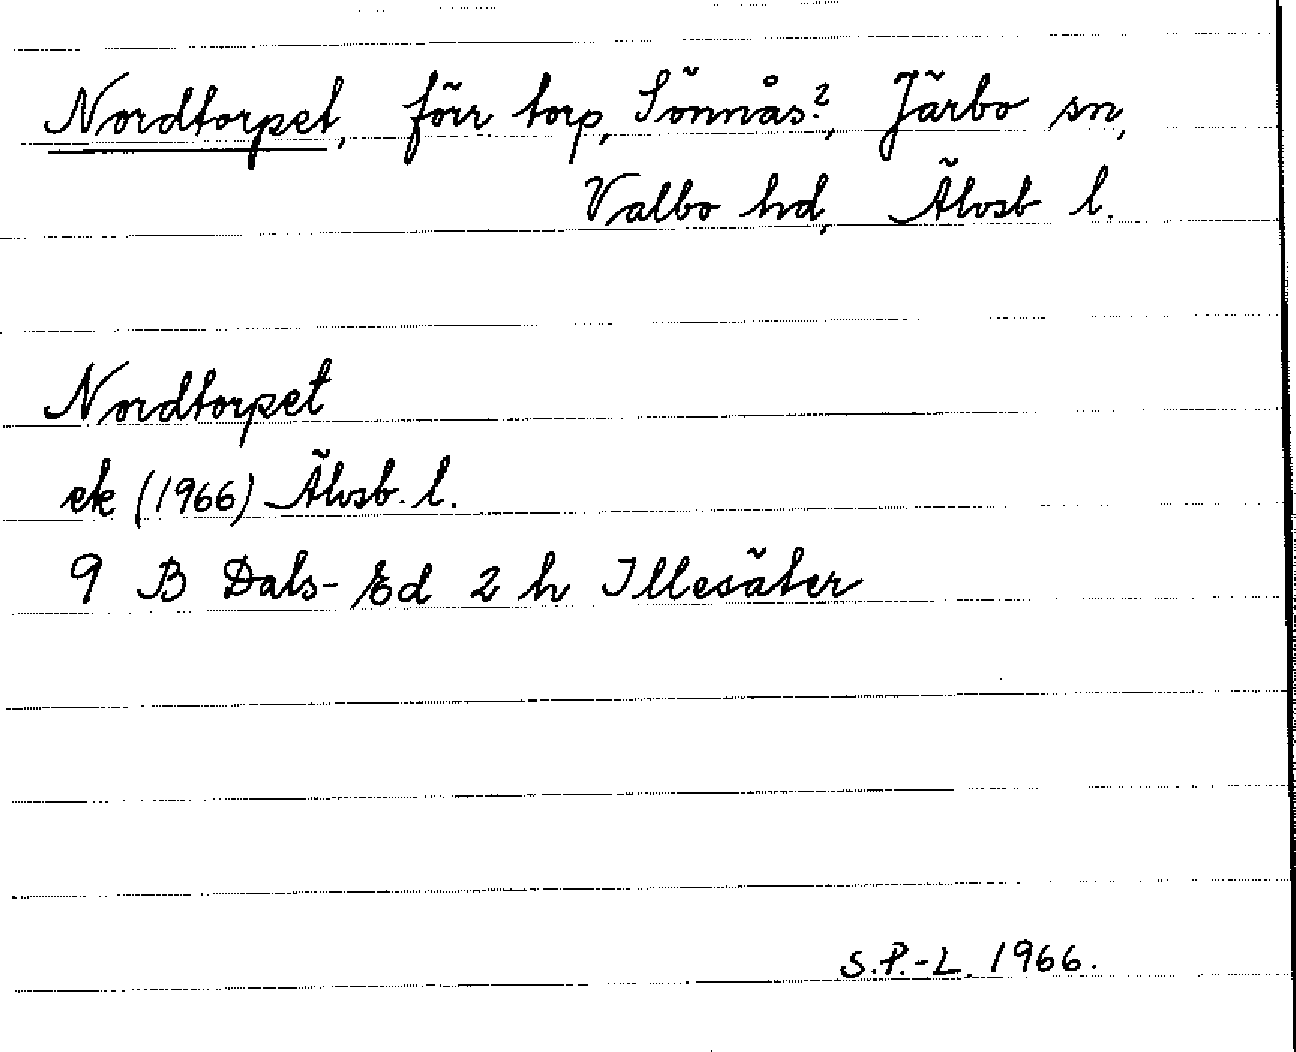 Nordtorpet, förr torp, Sönnås?, Järbo sn,
Valbo hd, Älvsb l.
Nordtorpet
ek (1966) Älvsb. l.
9 B Dals-Ed 2 h Illesäter
S.P.-L. 1966.